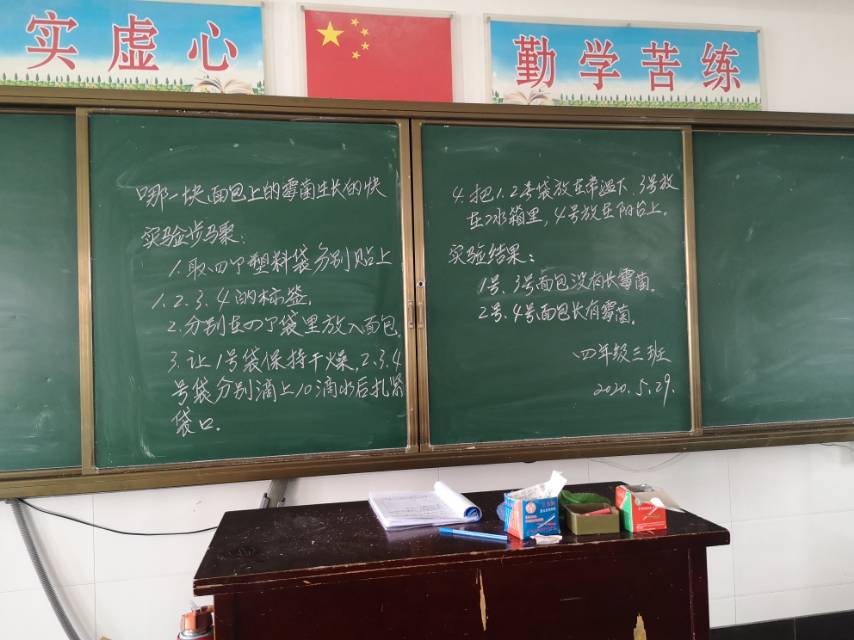 实虚心
勤学苦练
哪一块面包上的霉菌生长的快
实验步骤：
1.取四个塑料袋分别贴上
1.2.3.4的标签.
2.分别在四个袋里放入面包.
3.让1号袋保持干燥,2.3.4
号袋分别滴上10滴水后扎紧
袋口.
4.把1.2号袋放在常温下,3号放
在冰箱里,4号放在阳台上.
实验结果：
1号、3号面包没有长霉菌.
2号、4号面包长有霉菌.
四年级三班
2020.5.29.